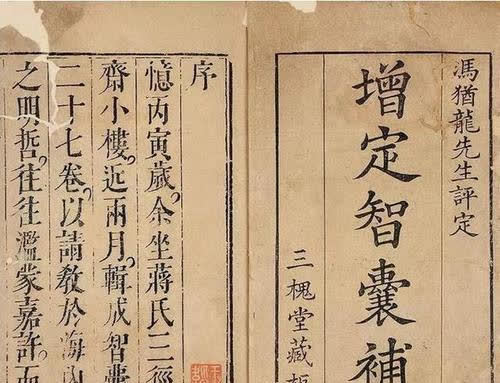 馮猶龍先生評定
增定智囊補
三槐堂藏板
序
憶丙寅歲。余坐蔣氏三徑
齋小樓。近兩月。輯成智囊
二十七卷。以請教於海內
之明哲。往往濫蒙嘉許。而